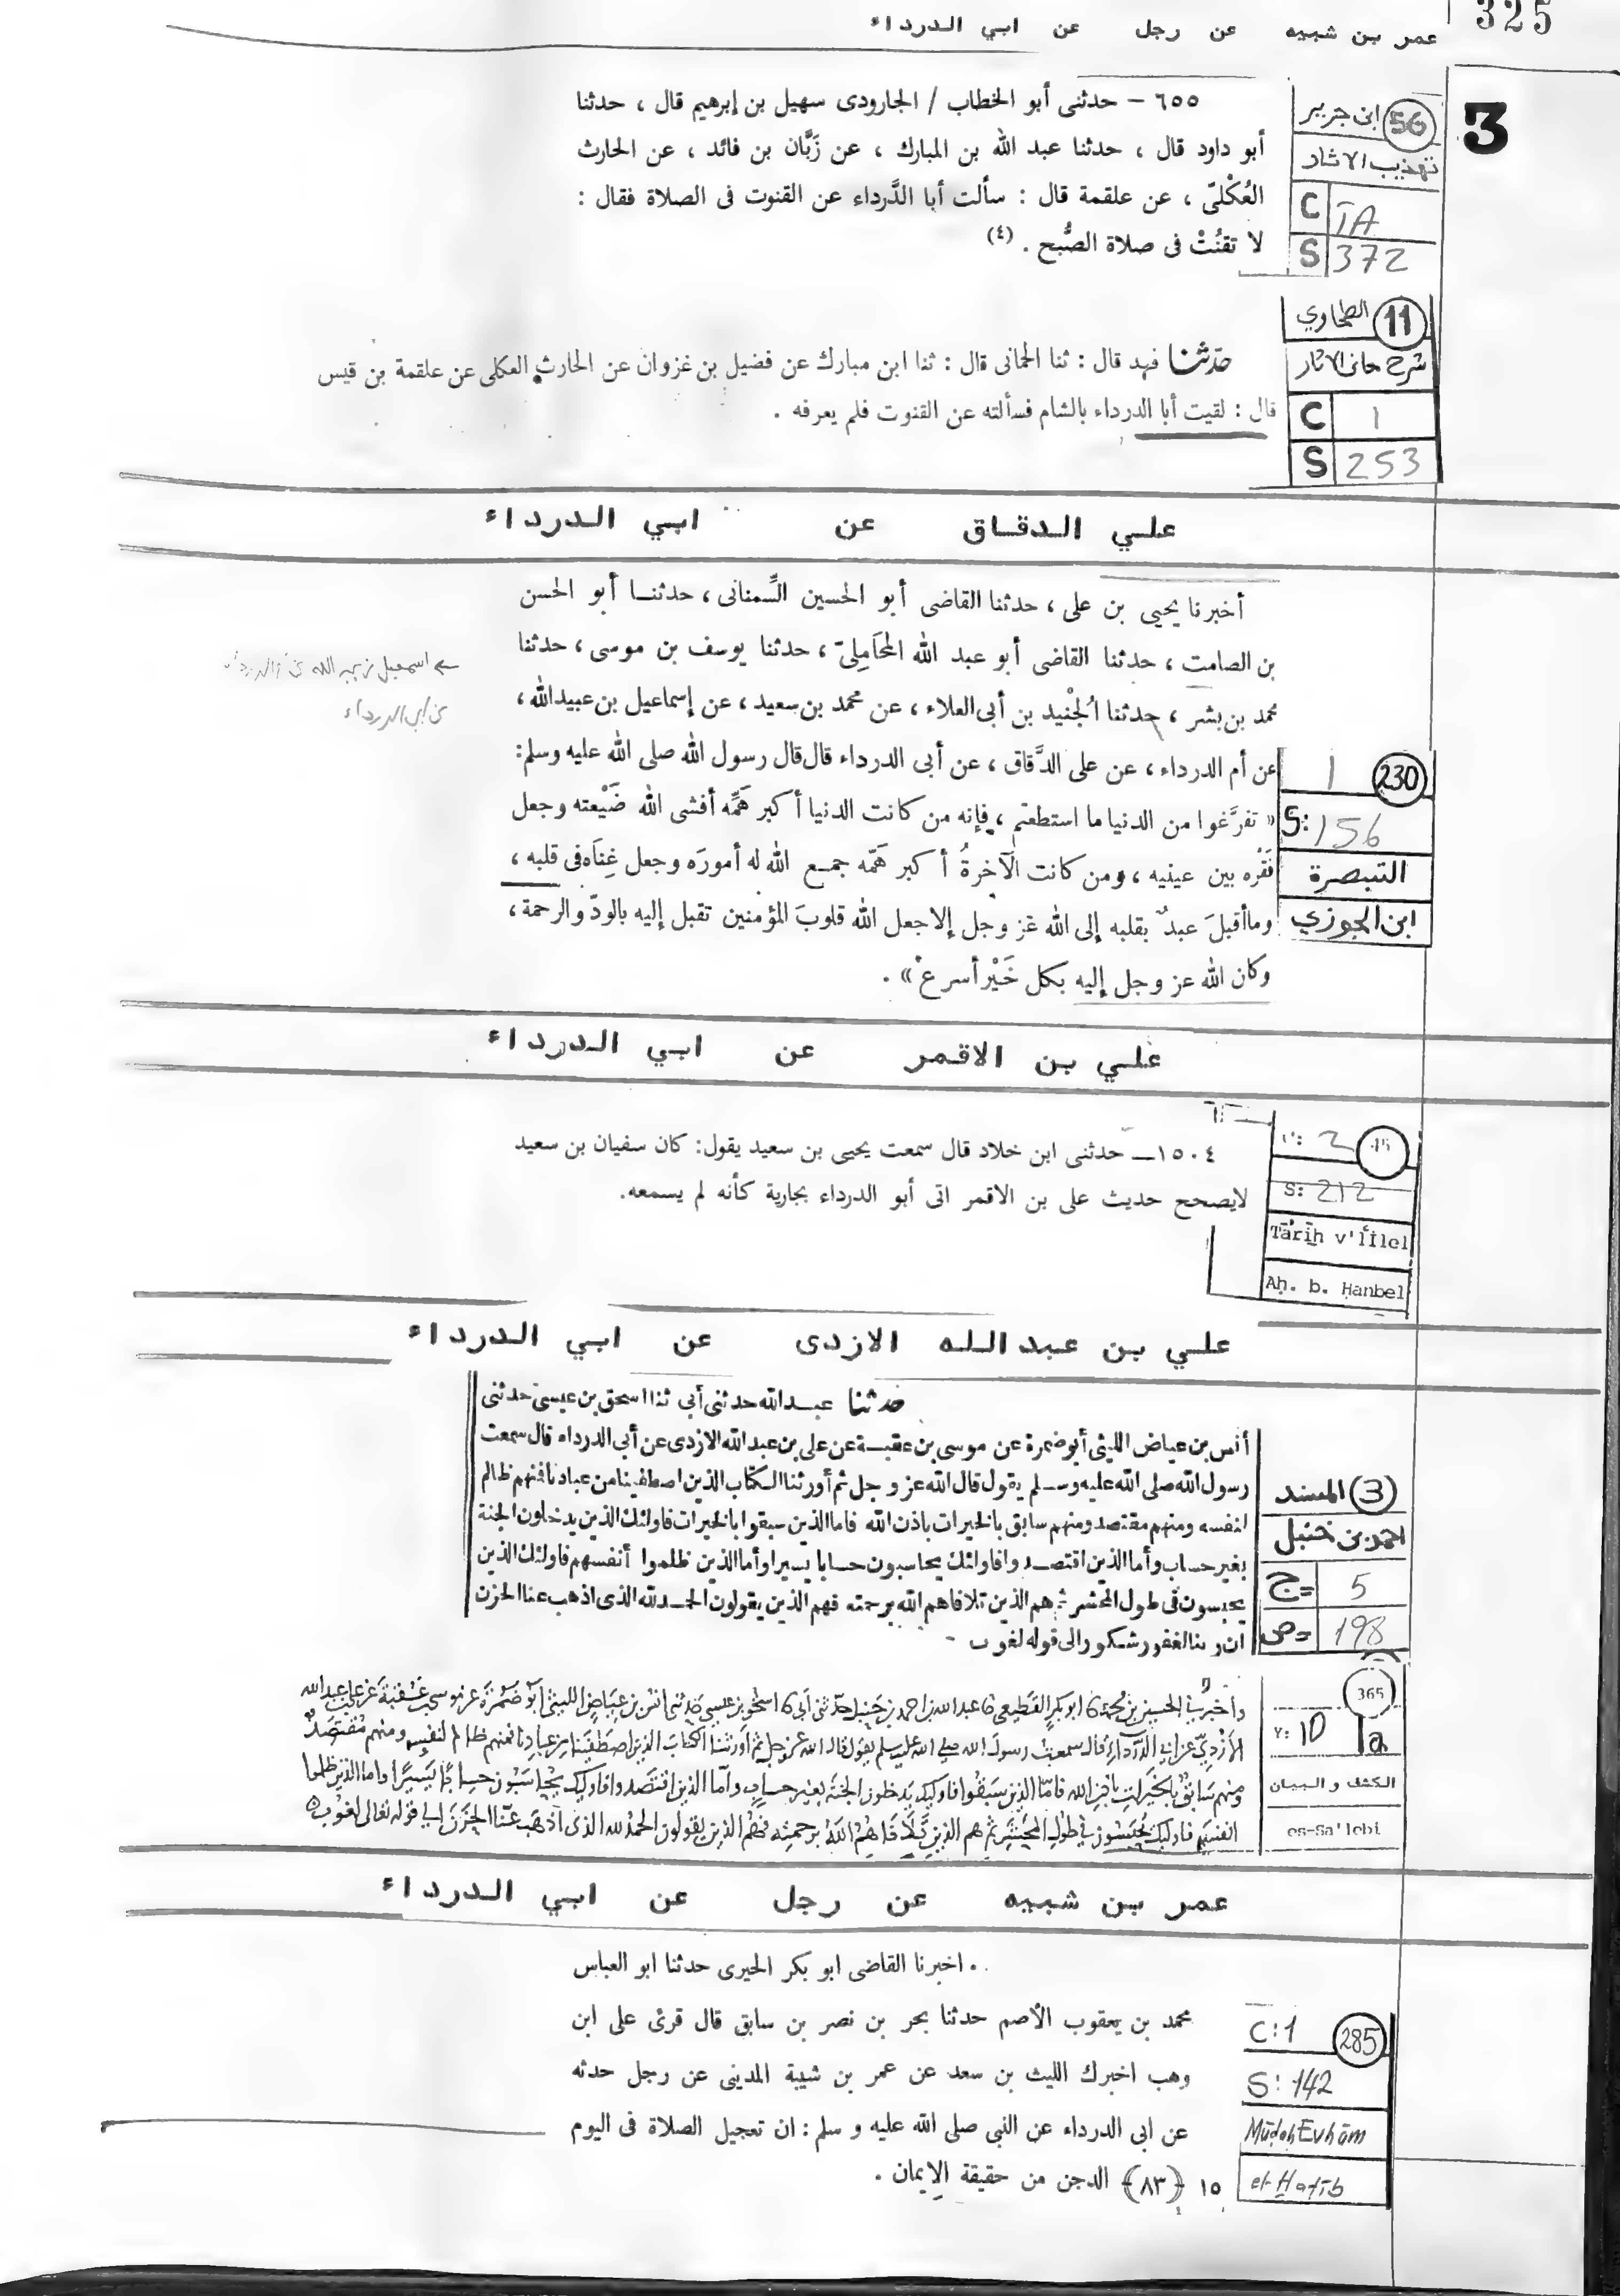 325
عمر بن شبيه عن رجل عن ابي الدرداء
3
56 ابن جرير
تهذيب الاثار
C IA
S 372
٦٥٥ – حدثنى أبو الخطاب / الجارودى سهيل بن إبرهيم قال ، حدثنا
أبو داود قال ، حدثنا عبد الله بن المبارك ، عن زَبَّان بن فائد ، عن الحارث
العُكْلىّ ، عن علقمة قال : سألت أبا الدَّرداء عن القنوت فى الصلاة فقال :
لا تقنُتْ فى صلاة الصُّبح . (٤)
11 الطحاوي
شرح معاني الاثار
C 1
S 253
حدثنا فهد قال : ثنا الحمانى قال : ثنا ابن مبارك عن فضيل بن غزوان عن الحارث العكلى عن علقمة بن قيس
قال : لقيت أبا الدرداء بالشام فسألته عن القنوت فلم يعرفه .
علي الدقاق عن ابي الدرداء
أخبرنا يحيى بن على ، حدثنا القاضى أبو الحسين السِّمنانى ، حدثنا أبو الحسن
بن الصامت ، حدثنا القاضى أبو عبد الله المحَامِلىّ ، حدثنا يوسف بن موسى ، حدثنا
محمد بن بشر ، حدثنا الجُنْيد بن أبى العلاء ، عن محمد بن سعيد ، عن إسماعيل بن عبيد الله ،
عن أم الدرداء ، عن على الدَّقاق ، عن أبى الدرداء قال قال رسول الله صلى الله عليه وسلم :
« تفرَّغوا من الدنيا ما استطعتم ، فإنه من كانت الدنيا أكبر هَمِّه أفشى الله ضَيْعته وجعل
فَقْره بين عينيه ، ومن كانت الآخرةُ أكبر هَمّه جمع الله له أمورَه وجعل غِنَاه فى قلبه ،
وما أقبلَ عبدٌ بقلبه إلى الله عز وجل إلا جعل الله قلوبَ المؤمنين تقبل إليه بالودّ والرحمة ،
وكان الله عز وجل إليه بكل خَيْر أسرع » .
← اسمعيل بن عبيد الله عن ام الدرداء
عن ابي الدرداء
1 230
S: 156
التبصرة
ابن الجوزي
علي بن الاقمر عن ابي الدرداء
١٥٠٤ــ حدثنى ابن خلاد قال سمعت يحيى بن سعيد يقول: كان سفيان بن سعيد
لايصحح حديث على بن الاقمر اتى أبو الدرداء بجارية كأنه لم يسمعه.
2 45
S: 212
Tārīḫ v'l İlel
Aḥ. b. Ḥanbel
علي بن عبدالله الازدى عن ابي الدرداء
حدثنا عبد الله حدثنى أبى ثنا اسحق بن عيسى حدثنى
أنس بن عياض الليثى أبو ضمرة عن موسى بن عقبة عن على بن عبد الله الازدى عن أبى الدرداء قال سمعت
رسول الله صلى الله عليه وسلم يقول قال الله عز وجل ثم أورثنا الكتاب الذين اصطفينا من عبادنا فمنهم ظالم
لنفسه ومنهم مقتصد ومنهم سابق بالخيرات باذن الله فاما الذين سبقوا بالخيرات فاولئك الذين يدخلون الجنة
بغير حساب وأما الذين اقتصدوا فاولئك يحاسبون حسابا يسيرا وأما الذين ظلموا أنفسهم فاولئك الذين
يحبسون فى طول المحشر ثم هم الذين تلافاهم الله برحمته فهم الذين يقولون الحمد لله الذى اذهب عنا الحزن
ان ربنا لغفور شكور الى قوله لغوب -
3 المسند
احمد بن حنبل
ج= 5
ص= 198
واخبرني الحسين بن محمد ابو بكر القطيعي عبد الله بن احمد بن حنبل حدثنى أبى اسحق بن عيسى حدثنى انس بن عياض الليثى ابو ضمرة عن موسى بن عقبة عن على بن عبد الله
الازدي عن ابي الدرداء قال سمعت رسول الله صلى الله عليه وسلم يقول قال الله عز وجل ثم اورثنا الكتاب الذين اصطفينا من عبادنا فمنهم ظالم لنفسه ومنهم مقتصد
ومنهم سابق بالخيرات باذن الله فاما الذين سبقوا فاولئك يدخلون الجنة بغير حساب واما الذين اقتصدوا فاولئك يحاسبون حسابا يسيرا واما الذين ظلموا
انفسهم فاولئك يحبسون في طول المحشر ثم هم الذين تلافاهم الله برحمته فهم الذين يقولون الحمد لله الذى اذهب عنا الحزن الى قوله تعالى لغوب
365
Y: 10 1a
الكشف و البيان
es-Sa'lebi
عمر بن شبيه عن رجل عن ابي الدرداء
. اخبرنا القاضى ابو بكر الحيرى حدثنا ابو العباس
محمد بن يعقوب الأصم حدثنا بحر بن نصر بن سابق قال قرئ على ابن
وهب اخبرك الليث بن سعد عن عمر بن شيبة المدينى عن رجل حدثه
عن ابى الدرداء عن النبى صلى الله عليه و سلم : ان تعجيل الصلاة فى اليوم
١٥ (٨٣) الدجن من حقيقة الإيمان .
C:1 285
S: 142
Mūḍaḥ Evhām
el-Ḫaṭīb